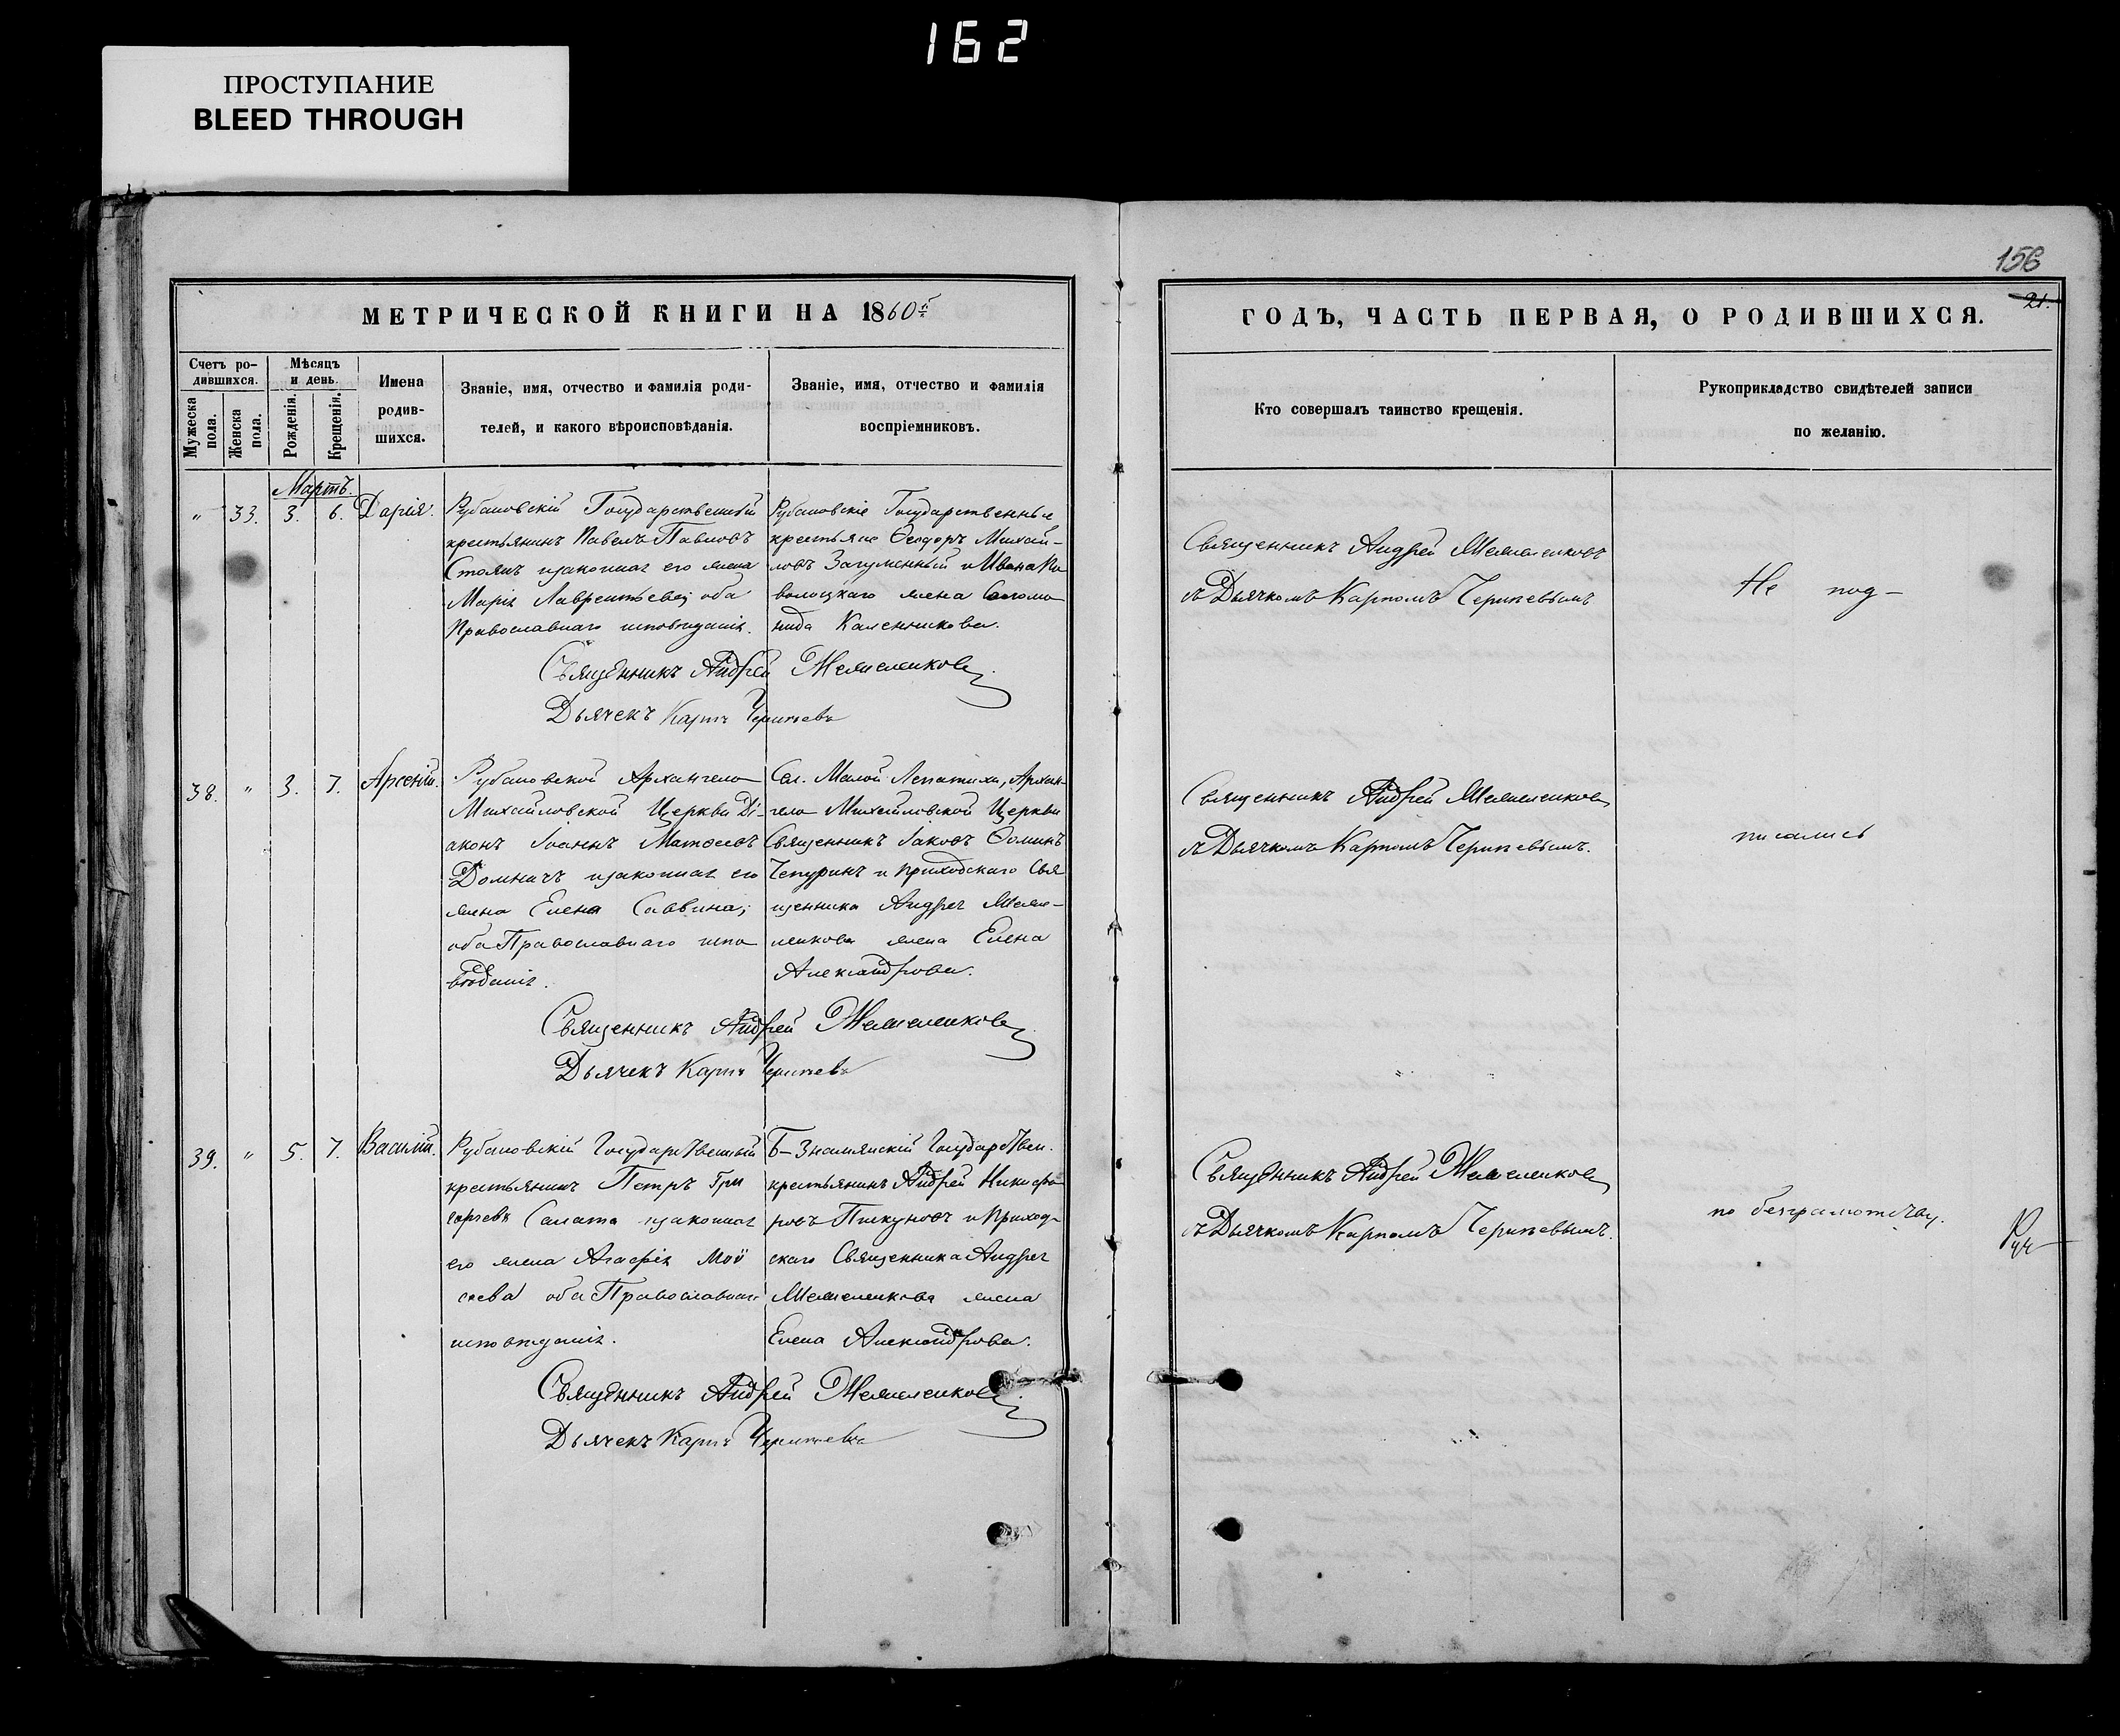 162
ПРОСТУПАНИЕ
BLEED THROUGH
156
21.
МЕТРИЧЕСКОЙ КНИГИ НА 1860й
Счетъ родившихся.
Мѣсяцъ и день.
Мужеска пола.
Женска пола.
Рожденія.
Крещенія.
Имена родившихся.
Званіе, имя, отчество и фамилія родителей, и какого вѣроисповѣданія.
Званіе, имя, отчество и фамилія воспріемниковъ.
Мартъ.
" 33. 3. 6. Дарія.
Рубановскій Государственный
крестьянинъ Павелъ Павловъ
Стоянъ изаконная его жена
Марія Лаврентьева; оба
Православнаго исповѣданія.
Рубановскіе Государственные
крестьяне Ѳеодоръ Михай-
ловъ Загуменный и Ивана
волоцкаго жена Соломо
нида Каленникова.
Священникъ Андрей
Дьячекъ Карпъ
38. " 3. 7. Арсеній.
Рубановской Архангело
Михайловской Церкви Ді-
аконъ Іоаннъ Матѳеевъ
Домничъ изаконная его
жена Елена Саввина;
оба Православнаго испо
вѣданія.
Сел. Малой Лепатихи, Архан-
гело Михайловской Церкви
Священникъ Іаковъ Ѳоминъ
Чепуринъ и приходскаго Свя
щенника Андрея
жена Елена
Александрова.
Священникъ Андрей
Дьячекъ Карпъ
39. " 5. 7. Василій.
Рубановскій Государственный
крестьянинъ Петръ Гри
горьевъ Салата изаконная
его жена Агафія Мои
сеева оба Православнаго
исповѣданія.
Б-Знамянскій Государствен.
крестьянинъ Андрей Никифо
ровъ Пискуновъ и Приход-
скаго Священника Андрея
жена
Елена Александрова.
Священникъ Андрей
Дьячекъ Карпъ
ГОДЪ, ЧАСТЬ ПЕРВАЯ, О РОДИВШИХСЯ.
Кто совершалъ таинство крещенія.
Рукоприкладство свидѣтелей записи
по желанію.
Священникъ Андрей
съ Дьячкомъ Карпомъ
Не под-
Священникъ Андрей
съ Дьячкомъ Карпомъ
писались
Священникъ Андрей
съ Дьячкомъ Карпомъ
по безграмотству.